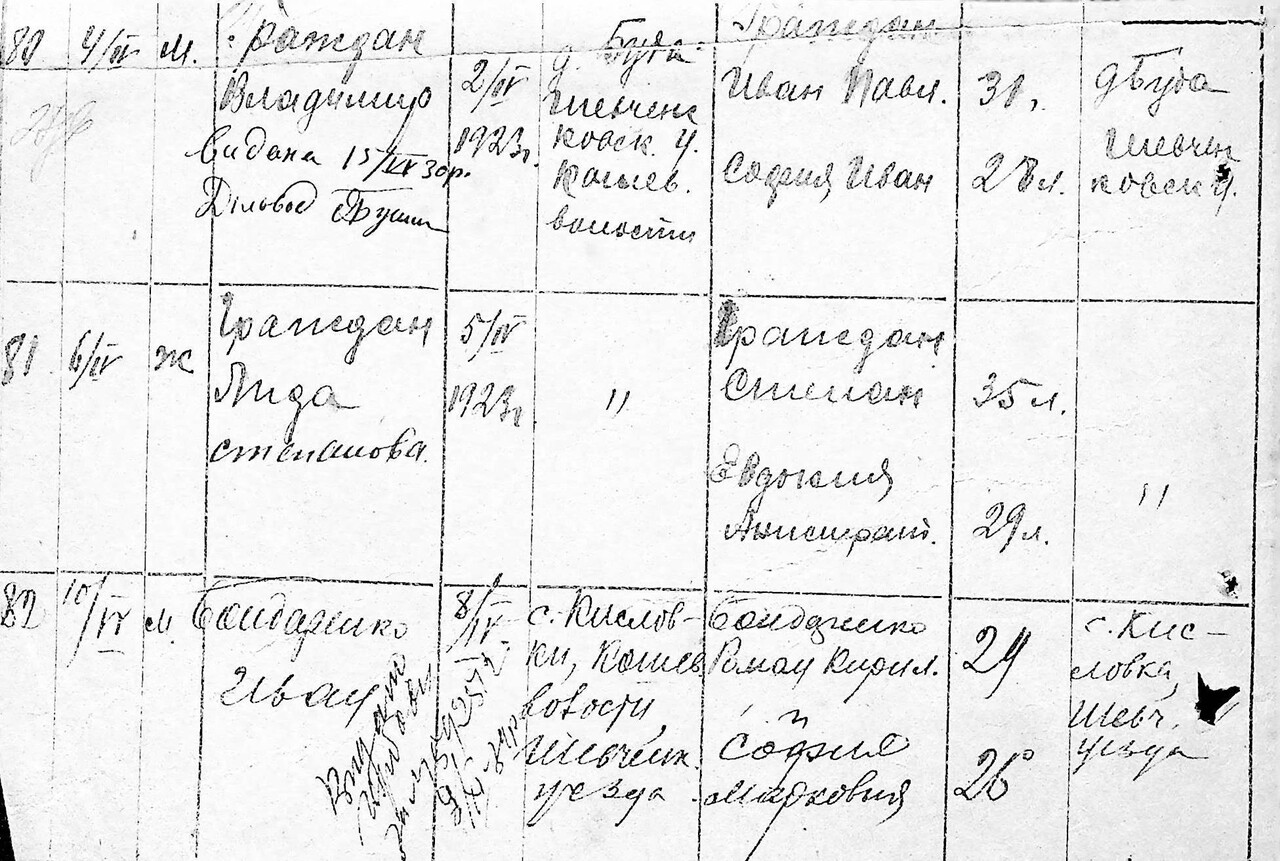 80 4/IV м. Граждан
Владимир
Видана 15/IV 30р.
Діловод
2/IV
1923г.
д. Буда
Шевченковск. у.
Кошев.
волости
Граждан
Иван Павл.
София Иван
31.
28л.
д Буда
Шевчен
ковск у.
81 6/IV ж
Граждан
Лида
степанова.
5/IV
1923г
"
Граждан
Степан
Евдокия
Анистрат.
35л.
29л.
"
82 10/IV м.
Бондаренко
Иван
8/IV
с. Кислов-
ки, Кошев
волости,
Шевченк.
уезда
Бондаренко
Роман Кирил.
и
София
Марковия
29
26
с. Кис-
ловка,
Шевч.
уезда